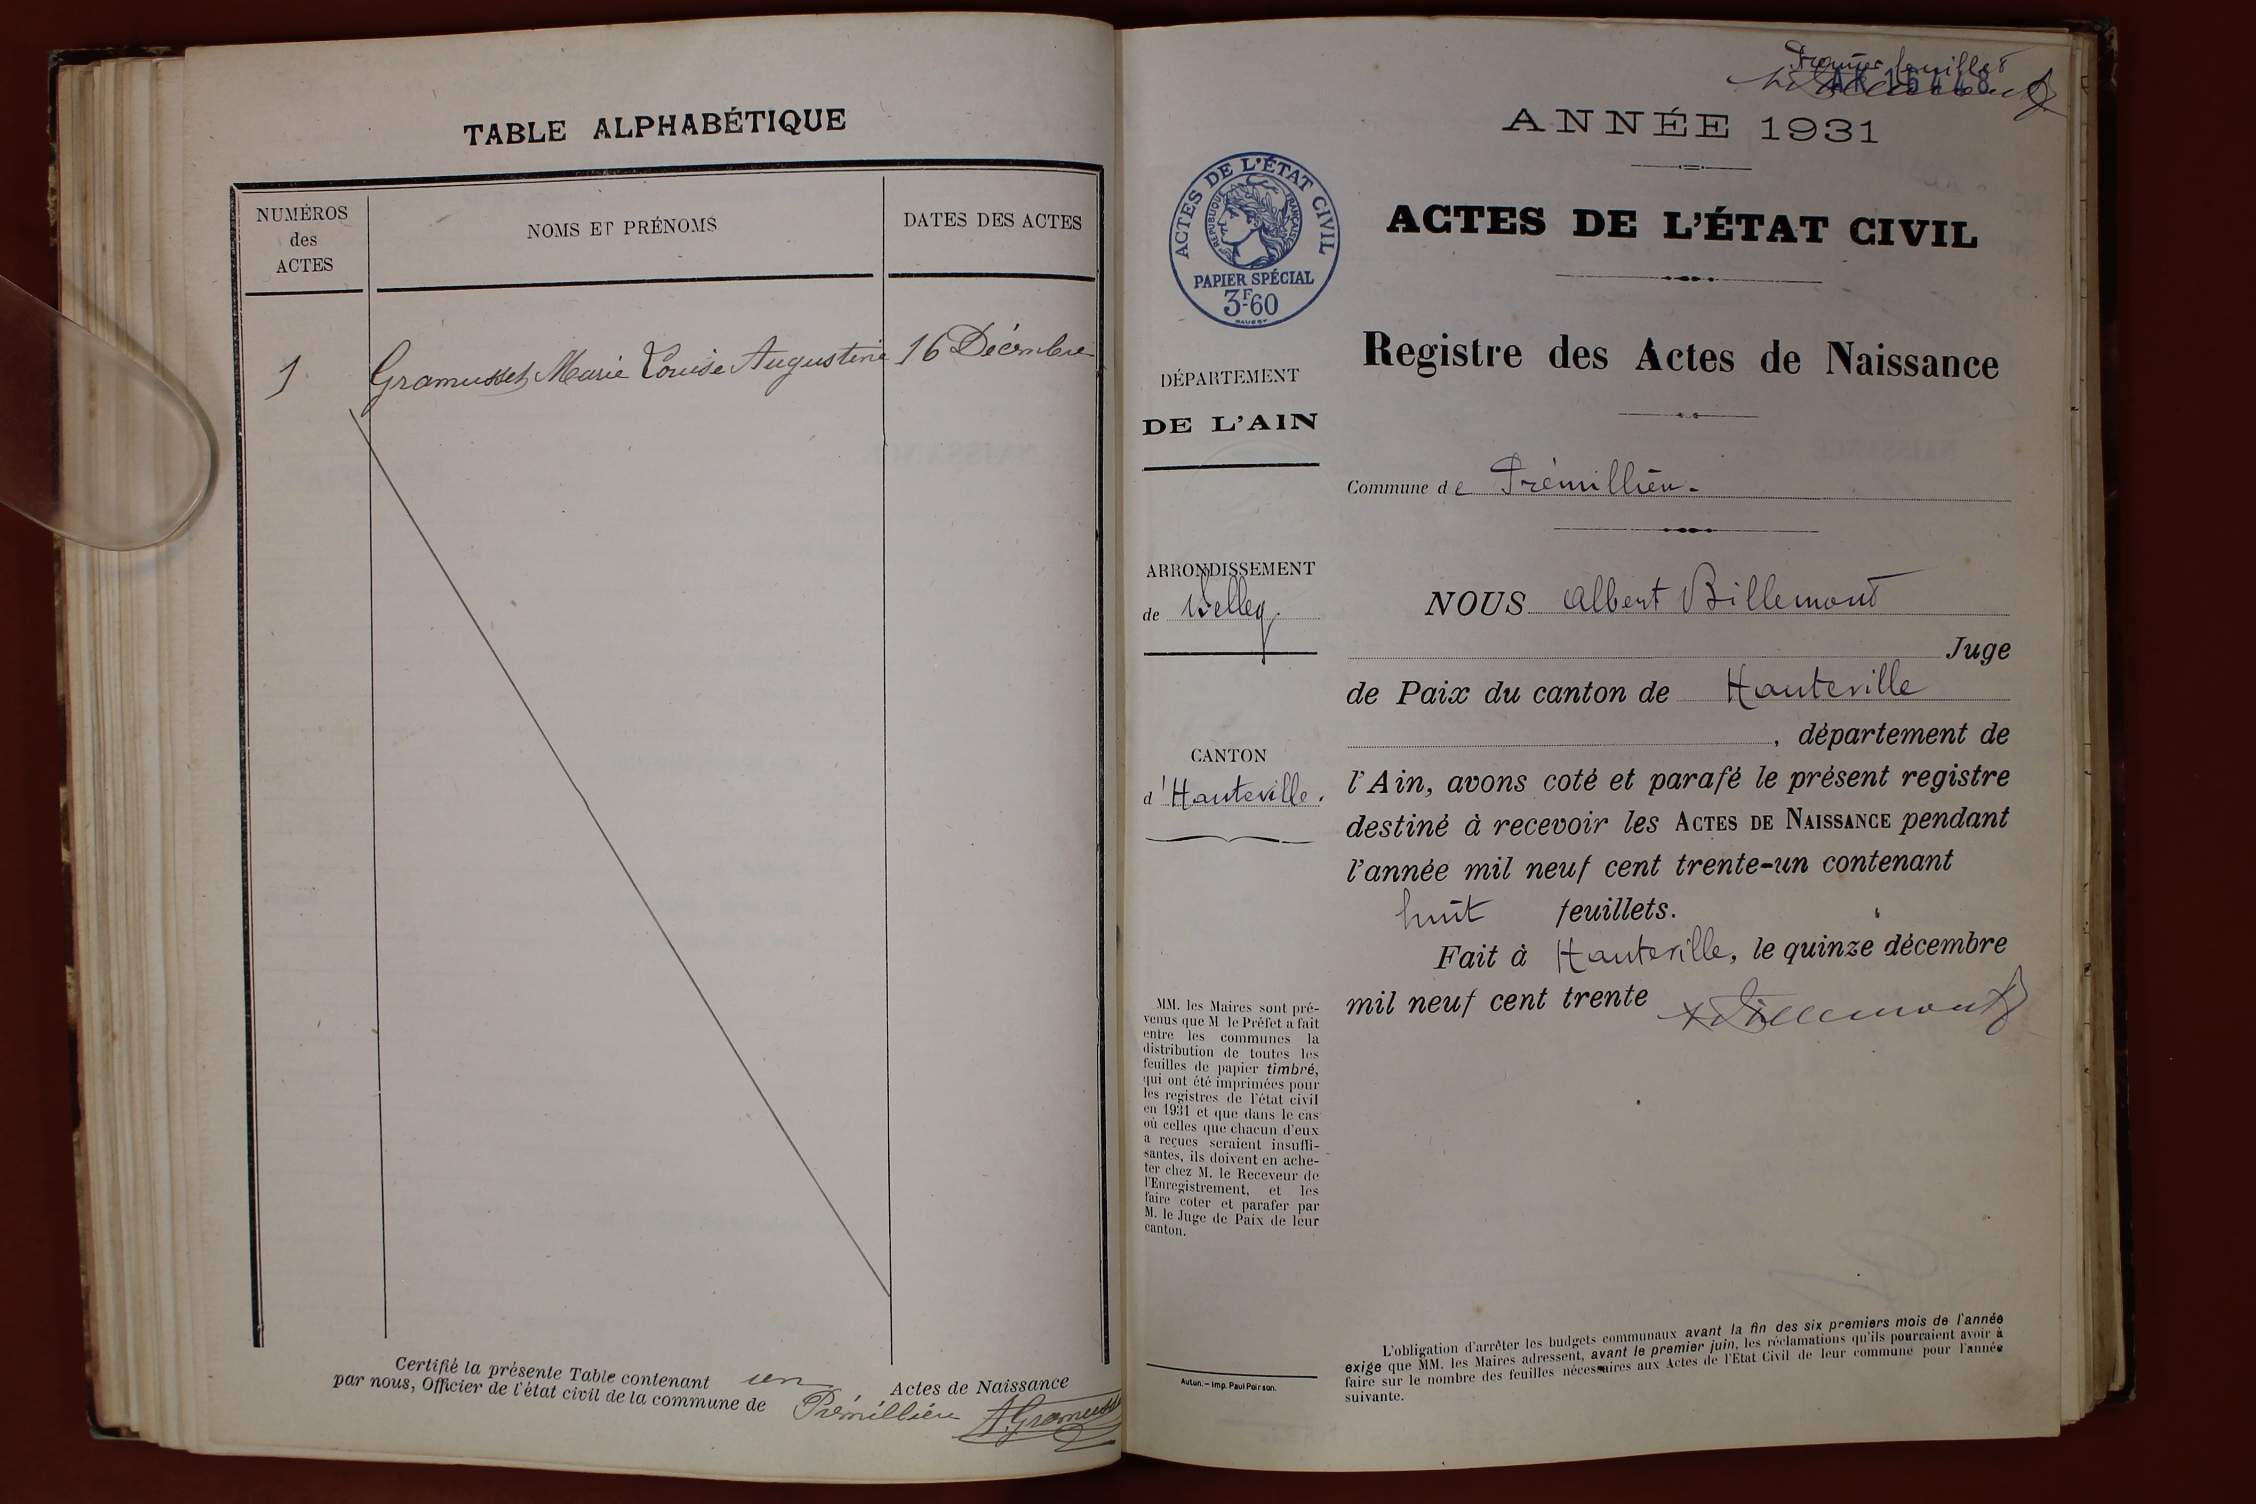 TABLE ALPHABÉTIQUE
NUMÉROS
des
ACTES
NOMS ET PRÉNOMS
DATES DES ACTES
1 Gramusset Marie Louise Augustine 16 Décembre
Certifié la présente Table contenant un Actes de Naissance
par nous, Officier de l'état civil de la commune de Prémillieu A. Gramusset
Premier feuillet
ANNÉE 1931
ACTES DE L'ÉTAT CIVIL
RÉPUBLIQUE FRANÇAISE
PAPIER SPÉCIAL
3F60
ACTES DE L'ÉTAT CIVIL
Registre des Actes de Naissance
DÉPARTEMENT
DE L'AIN
Commune de Prémillieu.
ARRONDISSEMENT
de Belley
CANTON
d'Hauteville.
NOUS Albert Billemont
Juge
de Paix du canton de Hauteville
, département de
l'Ain, avons coté et parafé le présent registre
destiné à recevoir les ACTES DE NAISSANCE pendant
l'année mil neuf cent trente-un contenant
huit feuillets.
Fait à Hauteville, le quinze décembre
mil neuf cent trente Billemont
MM. les Maires sont pré-
venus que M le Préfet a fait
entre les communes la
distribution de toutes les
feuilles de papier timbré,
qui ont été imprimées pour
les registres de l'état civil
en 1931 et que dans le cas
où celles que chacun d'eux
a reçues seraient insuffi-
santes, ils doivent en ache-
ter chez M. le Receveur de
l'Enregistrement, et les
faire coter et parafer par
M. le Juge de Paix de leur
canton.
Autun. – Imp. Paul Poirson.
L'obligation d'arrêter les budgets communaux avant la fin des six premiers mois de l'année
exige que MM. les Maires adressent, avant le premier juin, les réclamations qu'ils pourraient avoir à
faire sur le nombre des feuilles nécessaires aux Actes de l'Etat Civil de leur commune pour l'année
suivante.